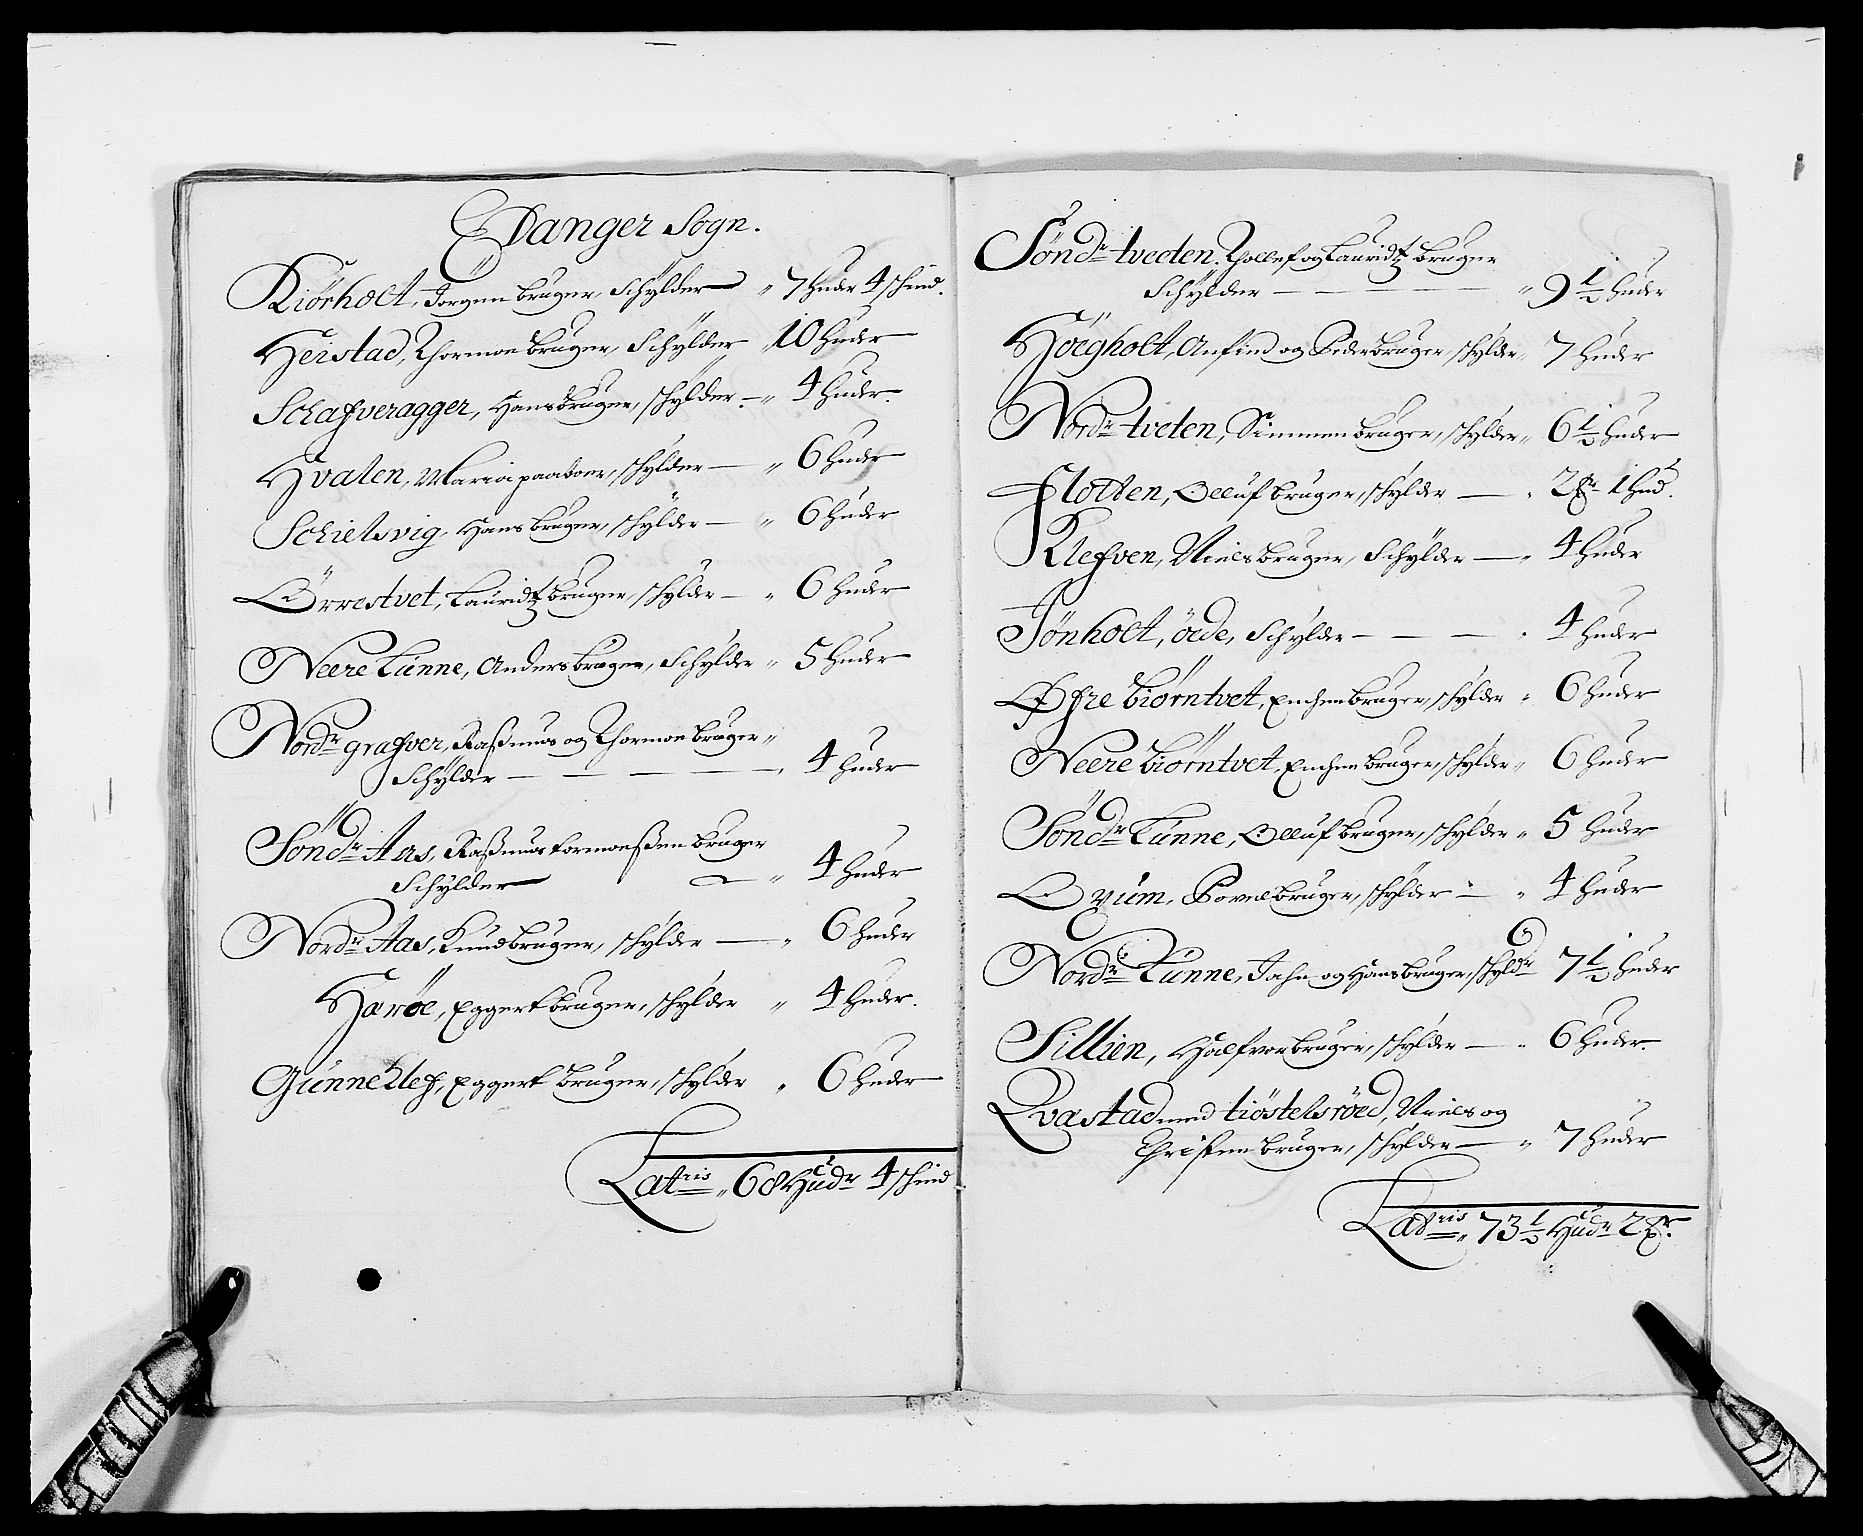 Edanger Sogn.
Kiörholt, Jörgen bruger, Schylder „ 7 huder 4 schind.
Herstad, Thormoe bruger, Schylder „ 10 huder
Schafveragger, Hans bruger, schylder — „ 4 huder.
Hvalen, Maria paaboer, schylder — „ 6 huder
Schielsvig, Hans bruger, schylder — „ 6 huder
Örrestvet, Lauridtz bruger, schylder — „ 6 huder
Neere Lunne, Anders bruger, Schylder „ 5 huder
Nordr grafver, Raßmus og Thormoe bruger „
Schylder — — — — „ 4 huder
Söndr Aas, Raßmus tormoeßen bruger
Schylder — „ 4 huder
Nordr Aas, Knud bruger, schylder — „ 6 huder
Haröe, Eggert bruger, schylder „ 4 huder.
Gunneklef, Eggert bruger, schylder „ 6 huder
Latris „ 68 Hudr 4 schind
Söndr tvedten, Tollef og Lauridtz bruger
Schylder — — — — „ 9 1/2 huder
Höegholt, Anfind og Peder bruger schylder „ 7 huder
Nordr tveten, Simmen bruger, schylder „ 6 1/2 huder
Flotten, Olluf bruger, schylder — „ 2 Er 1 hud.
Klefven, Niels bruger, Schylder — „ 4 huder
Jönholt, öde, Schylder — — — „ 4 huder
Øfre biörntvet, Enchen bruger, schylder „ 6 huder
Neere biörntvet, Enchen bruger, schylder „ 6 huder
Söndr Lunne, Olluf bruger, schylder „ 5 huder
Qvium, Povel bruger, schylder — „ 4 huder
Nordr Lunne, Jahn og Hans bruger, schyldr 7 1/2 huder
Sillien, Halfvor bruger, schylder — „ 6 huder.
Qvastad med tiöstelsröed, Niels og
Christen bruger, schylder — „ 7 huder
Latris „ 73 1/2 Hudr 2 Er.